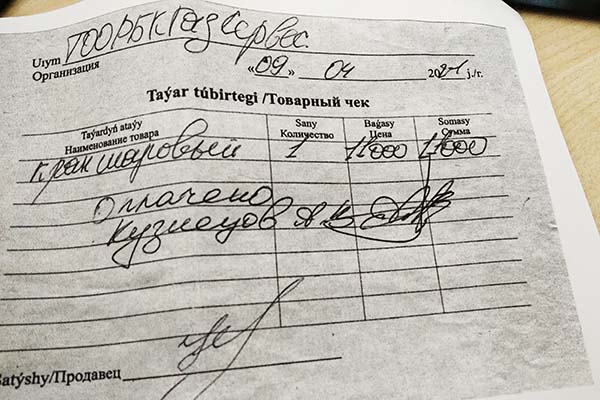 Uıym ТОО РБК Газ Сервес.
Организация
«09» 04 2021 j./г.
Taýar túbirtegi /Товарный чек
Taýardyń ataýy Sany Baǵasy Somasy
Наименование товара Количество Цена Сумма
кран шаровый 1 11000 11000
Оплачено
Кузнецов А В
Satýshy/Продавец